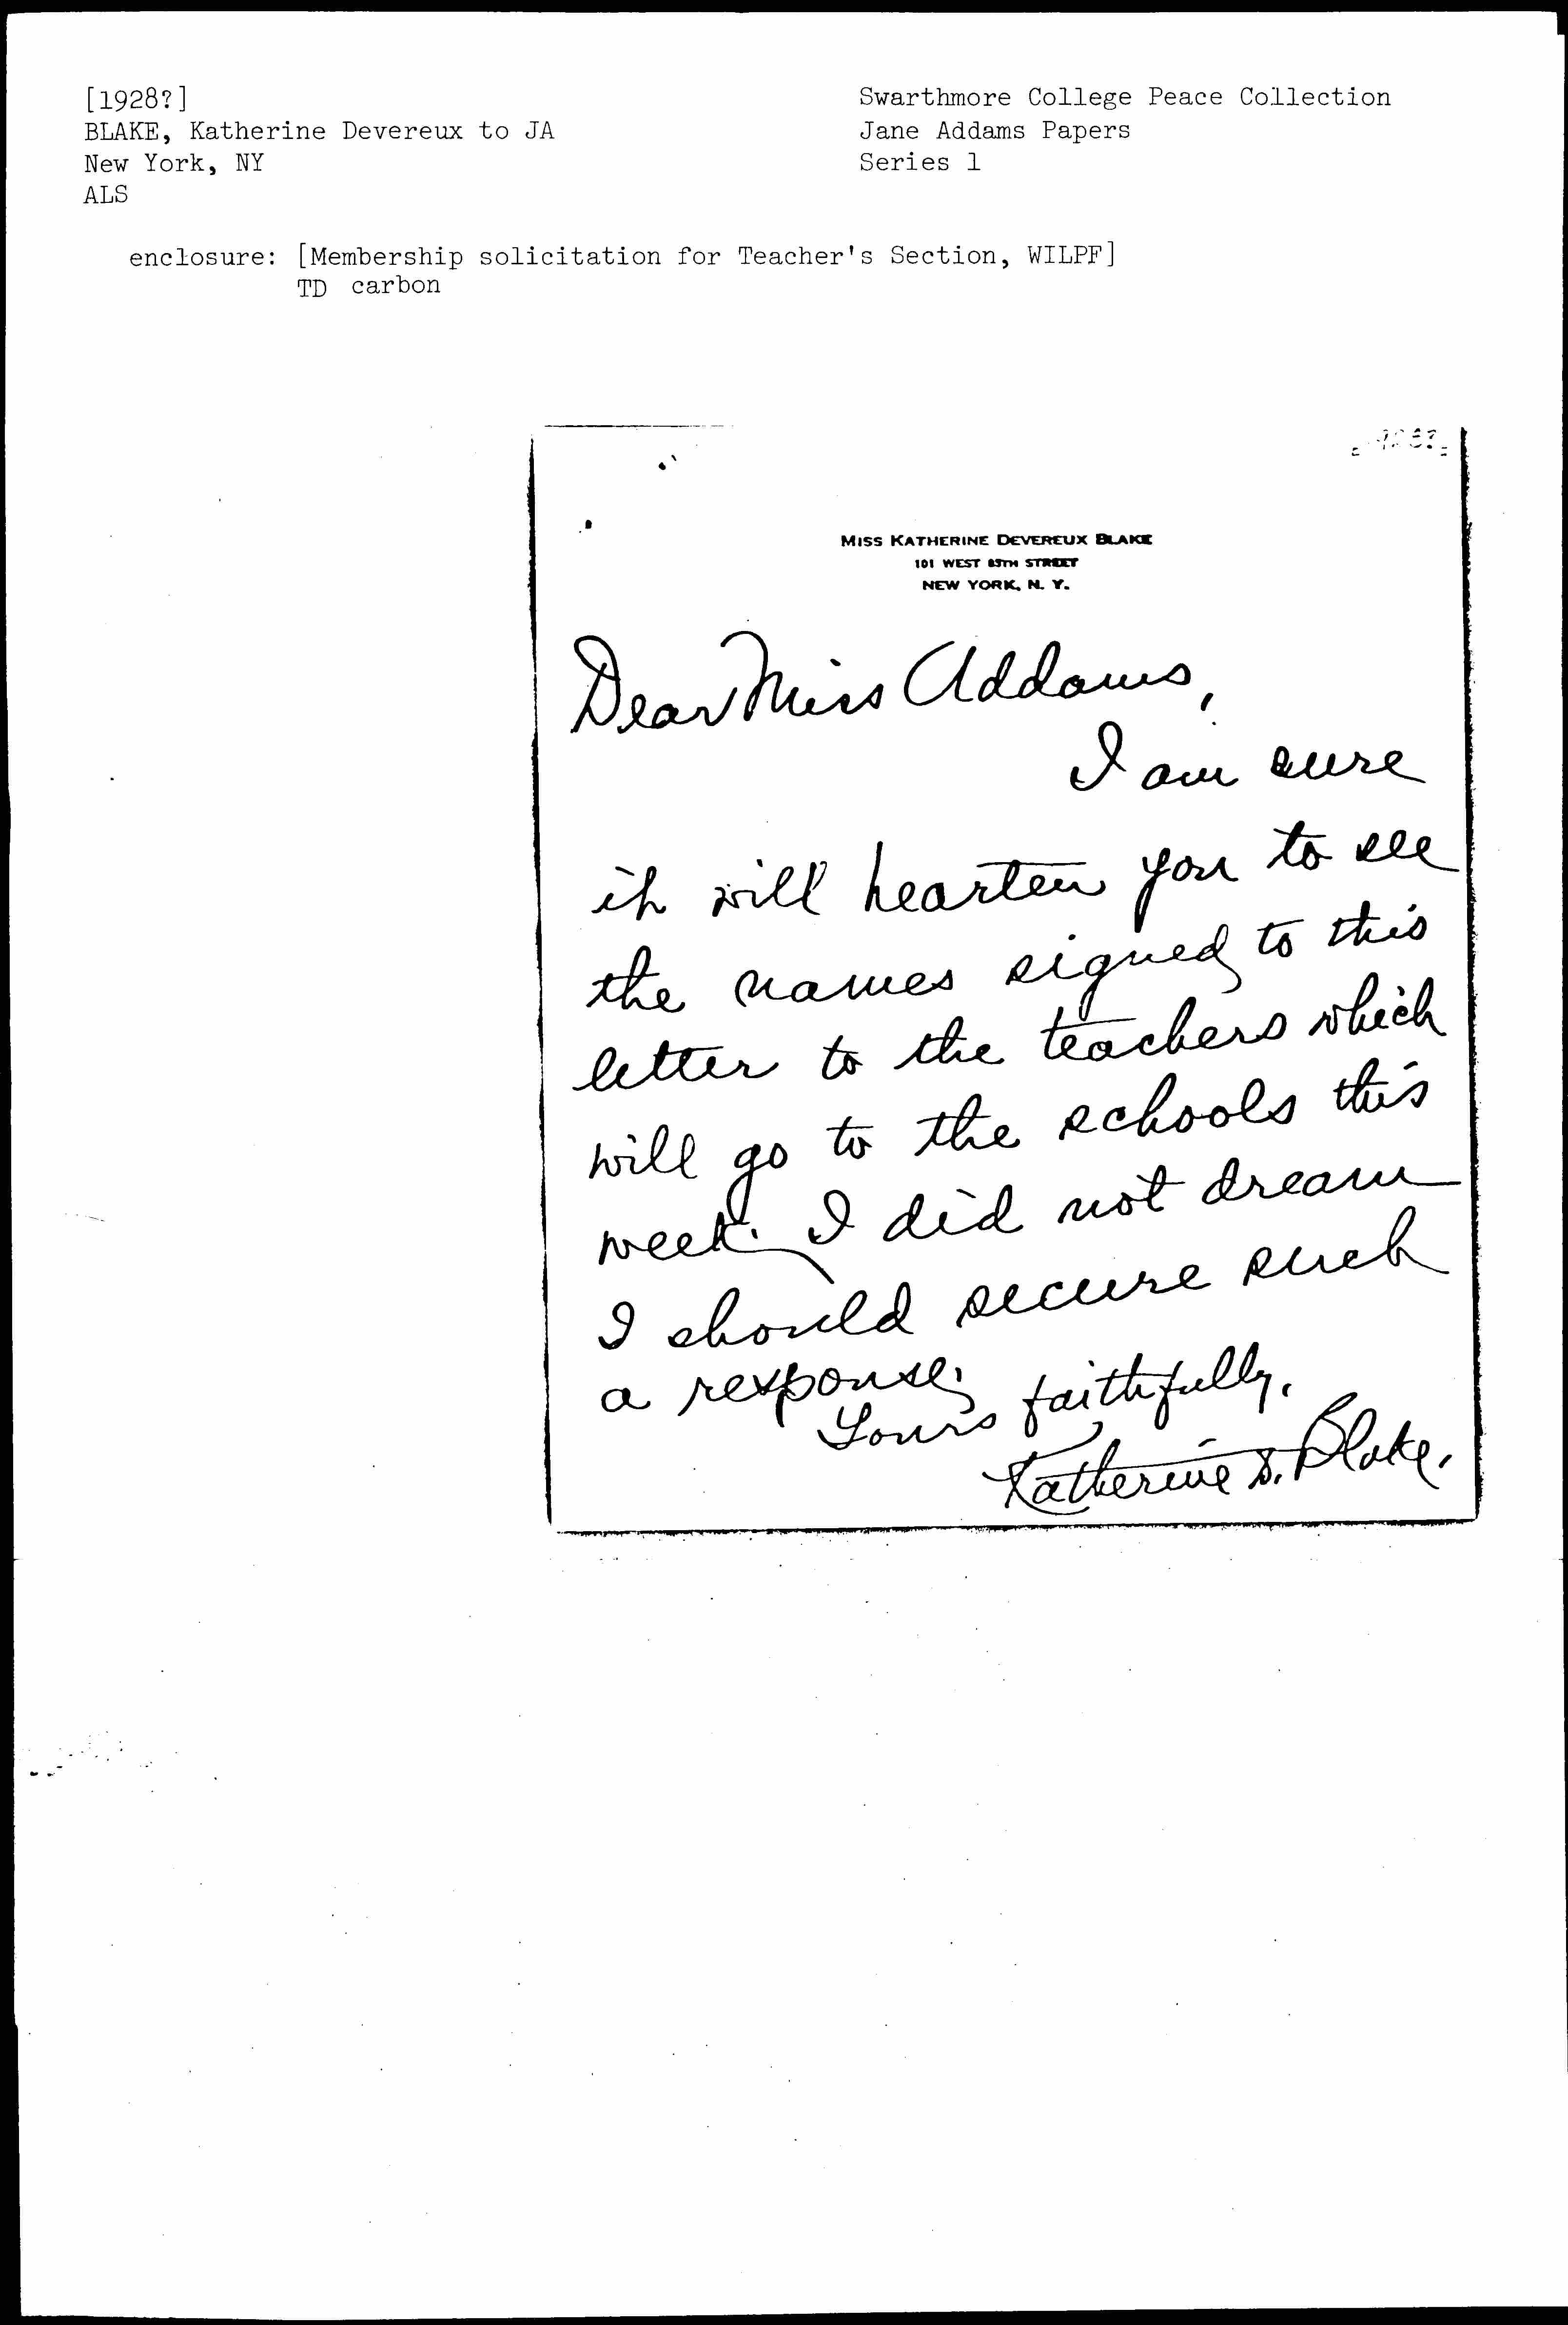 [1928?]
BLAKE, Katherine Devereux to JA
New York, NY
ALS
Swarthmore College Peace Collection
Jane Addams Papers
Series 1
enclosure: [Membership solicitation for Teacher's Section, WILPF]
TD carbon
MISS KATHERINE DEVEREUX BLAKE
101 WEST 85TH STREET
NEW YORK, N. Y.
Dear Miss Addams,
I am sure
it will hearten you to see
the names signed to this
letter to the teachers which
will go to the schools this
week. I did not dream
I should secure such
a response.
Yours faithfully,
Katherine D. Blake.